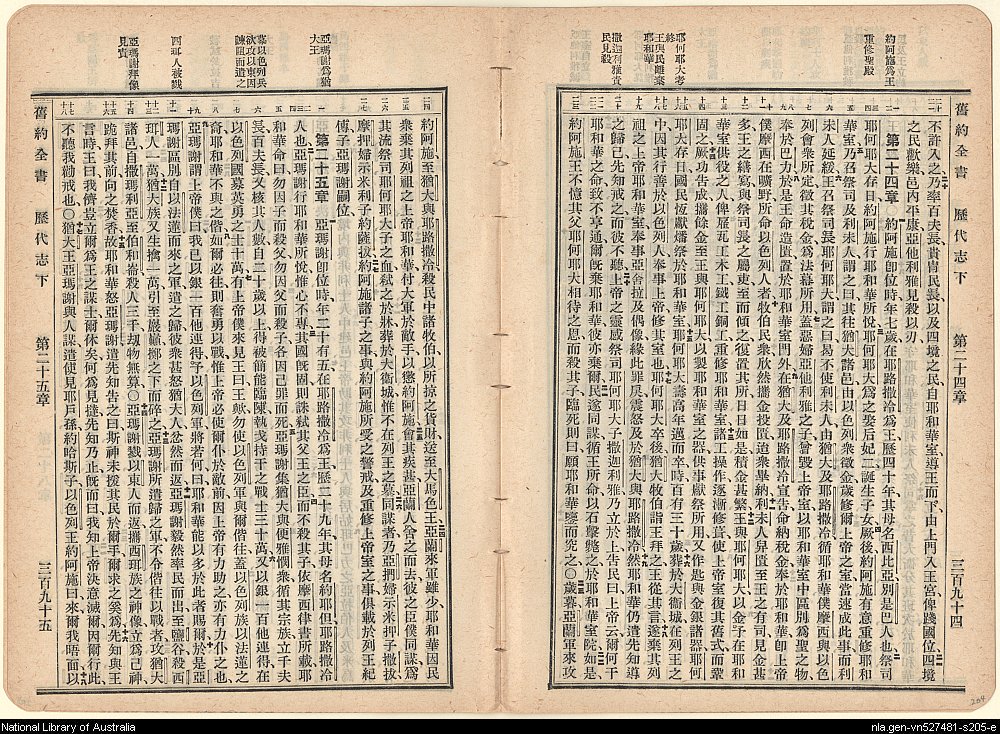 舊約全書 歷代志下 第二十四章 三百九十四
約阿施爲王
重修聖殿
耶何耶大考終
王與民離棄耶和華
撒迦利雅責民見殺
不許入之乃率百夫長貴胄民長以及四境之民自耶和華室導王而下由上門入王宮俾踐國位四境
之民歡樂邑內平康亞他利雅見殺以刃
第二十四章 約阿施卽位時年七歲在耶路撒冷爲王歷四十年其母名西比亞別是巴人也祭司
耶何耶大存日約阿施行耶和華所悅耶何耶大爲之娶后妃二誕生子女厥後約阿施有意重修耶和
華室乃召祭司及利未人謂之曰其往猶大諸邑由以色列衆徵金歲修爾上帝之室當速成此事而利
未人延緩王召祭司長耶何耶大謂之曰曷不使利未人由猶大及耶路撒冷循耶和華僕摩西與以色
列會衆所定徵其稅金爲法幕所用蓋惡婦亞他利雅之子曾毀上帝室以耶和華室中區別爲聖之物
奉於巴力於是王命造匱置於耶和華室門外在猶大及耶路撒冷宣告命納稅金奉於耶和華卽上帝
僕摩西在曠野所命以色列人者牧伯民衆欣然攜金投匱迨衆畢納利未人舁匱至王之有司見金甚
多王之繕寫與祭司長之屬吏至而傾之復置其所日日如是積金甚繁王與耶何耶大以金予在耶和
華室供役之人俾雇瓦工木工鐵工銅工重修耶和華室諸工操作逐漸修葺使上帝室復其舊式而鞏
固之厥功告成攜餘金至王與耶何耶大以製耶和華室之器供事獻祭所用又作匙與金銀諸器耶何
耶大存日國民恆獻燔祭於耶和華室耶何耶大壽高年邁而卒時百有三十歲葬於大衛城在列王之
中因其行善於以色列人奉事上帝修其室也耶何耶大卒後猶大牧伯謁王拜之王從其言遂棄其列
祖之上帝耶和華室奉事亞舍拉及偶像緣此罪戾震怒及於猶大與耶路撒冷然耶和華仍遣先知導
之歸己先知戒之而彼不聽上帝之靈感祭司耶何耶大子撒迦利雅乃立於上告民曰上帝云爾何干
耶和華之命致不亨通爾旣棄耶和華彼亦棄爾民遂同謀循王所命以石擊斃之於耶和華院如是
約阿施王不憶其父耶何耶大相待之恩而殺其子臨死則曰願耶和華鑒而究之〇歲暮亞蘭軍來攻
舊約全書 歷代志下 第二十五章 三百九十五
亞瑪謝爲猶大王
募以色列兵欲攻以東因諫阻而遣之
西珥人被戮
亞瑪謝拜像見責
約阿施至猶大與耶路撒冷殺民中諸牧伯以所掠之貨財送至大馬色王亞蘭來軍雖少耶和華因民
衆棄其列祖之上帝耶和華付大軍於敵手以懲約阿施會其疾甚亞蘭人舍之而去彼之臣僕同謀爲
其流祭司耶何耶大子之血弒之於牀葬於大衛城惟不在列王之墓同謀者乃亞捫婦示米押子撒拔
摩押婦示米利子約薩拔約阿施諸子之事與約阿施所受之警戒及重修上帝室之事俱載於列王紀
傳子亞瑪謝嗣位
第二十五章 亞瑪謝卽位時年二十有五在耶路撒冷爲王歷二十九年其母名約耶但耶路撒冷
人也亞瑪謝行耶和華所悅惟心不專其國旣固則誅弒其父王之臣而不殺其子依摩西律書所載耶
和華命曰勿因子而殺父勿因父而殺子各因己罪而死亞瑪謝集猶大與便雅憫衆循其宗族立千夫
長百夫長又核其人數自二十歲以上得被簡能臨陳執戈持干之戰士三十萬又以銀一百他連得在
以色列國募英勇之士十萬有上帝僕來見王曰王歟勿使以色列軍與爾偕往蓋以色列族以法蓮之
裔耶和華不與之偕如爾必往則奮勇以戰惟上帝必使爾仆於敵前因上帝有力助之亦有力仆之也
亞瑪謝謂上帝僕曰我已以銀一百他連得予以色列軍將若何曰耶和華能以多於此者賜爾於是亞
瑪謝區別自以法蓮而來之軍遣之歸彼衆甚怒猶大人忿然而返亞瑪謝毅然率民而出至鹽谷殺西
珥人一萬猶大族又生擒一萬引至巖巓擲之下而碎之亞瑪謝所遣歸之軍不令偕往以戰者攻猶大
諸邑自撒瑪利亞至伯和崙殺人三千刧物無算〇亞瑪謝戮以東人而返攜西珥族之神像立爲己神
跪拜其前向之焚香故耶和華怒亞瑪謝遣先知告之曰斯神未援其民於爾手爾求之奚爲先知與王
言時王曰我儕豈立爾爲王之謀士爾休矣何爲見撻先知乃止旣而曰我知上帝決意滅爾因爾行此
不聽我勸戒也〇猶大王亞瑪謝與人謀遣使見耶戶孫約哈斯子以色列王約阿施曰來爾我晤面以
National Library of Australia
nla.gen-vn527481-s205-e